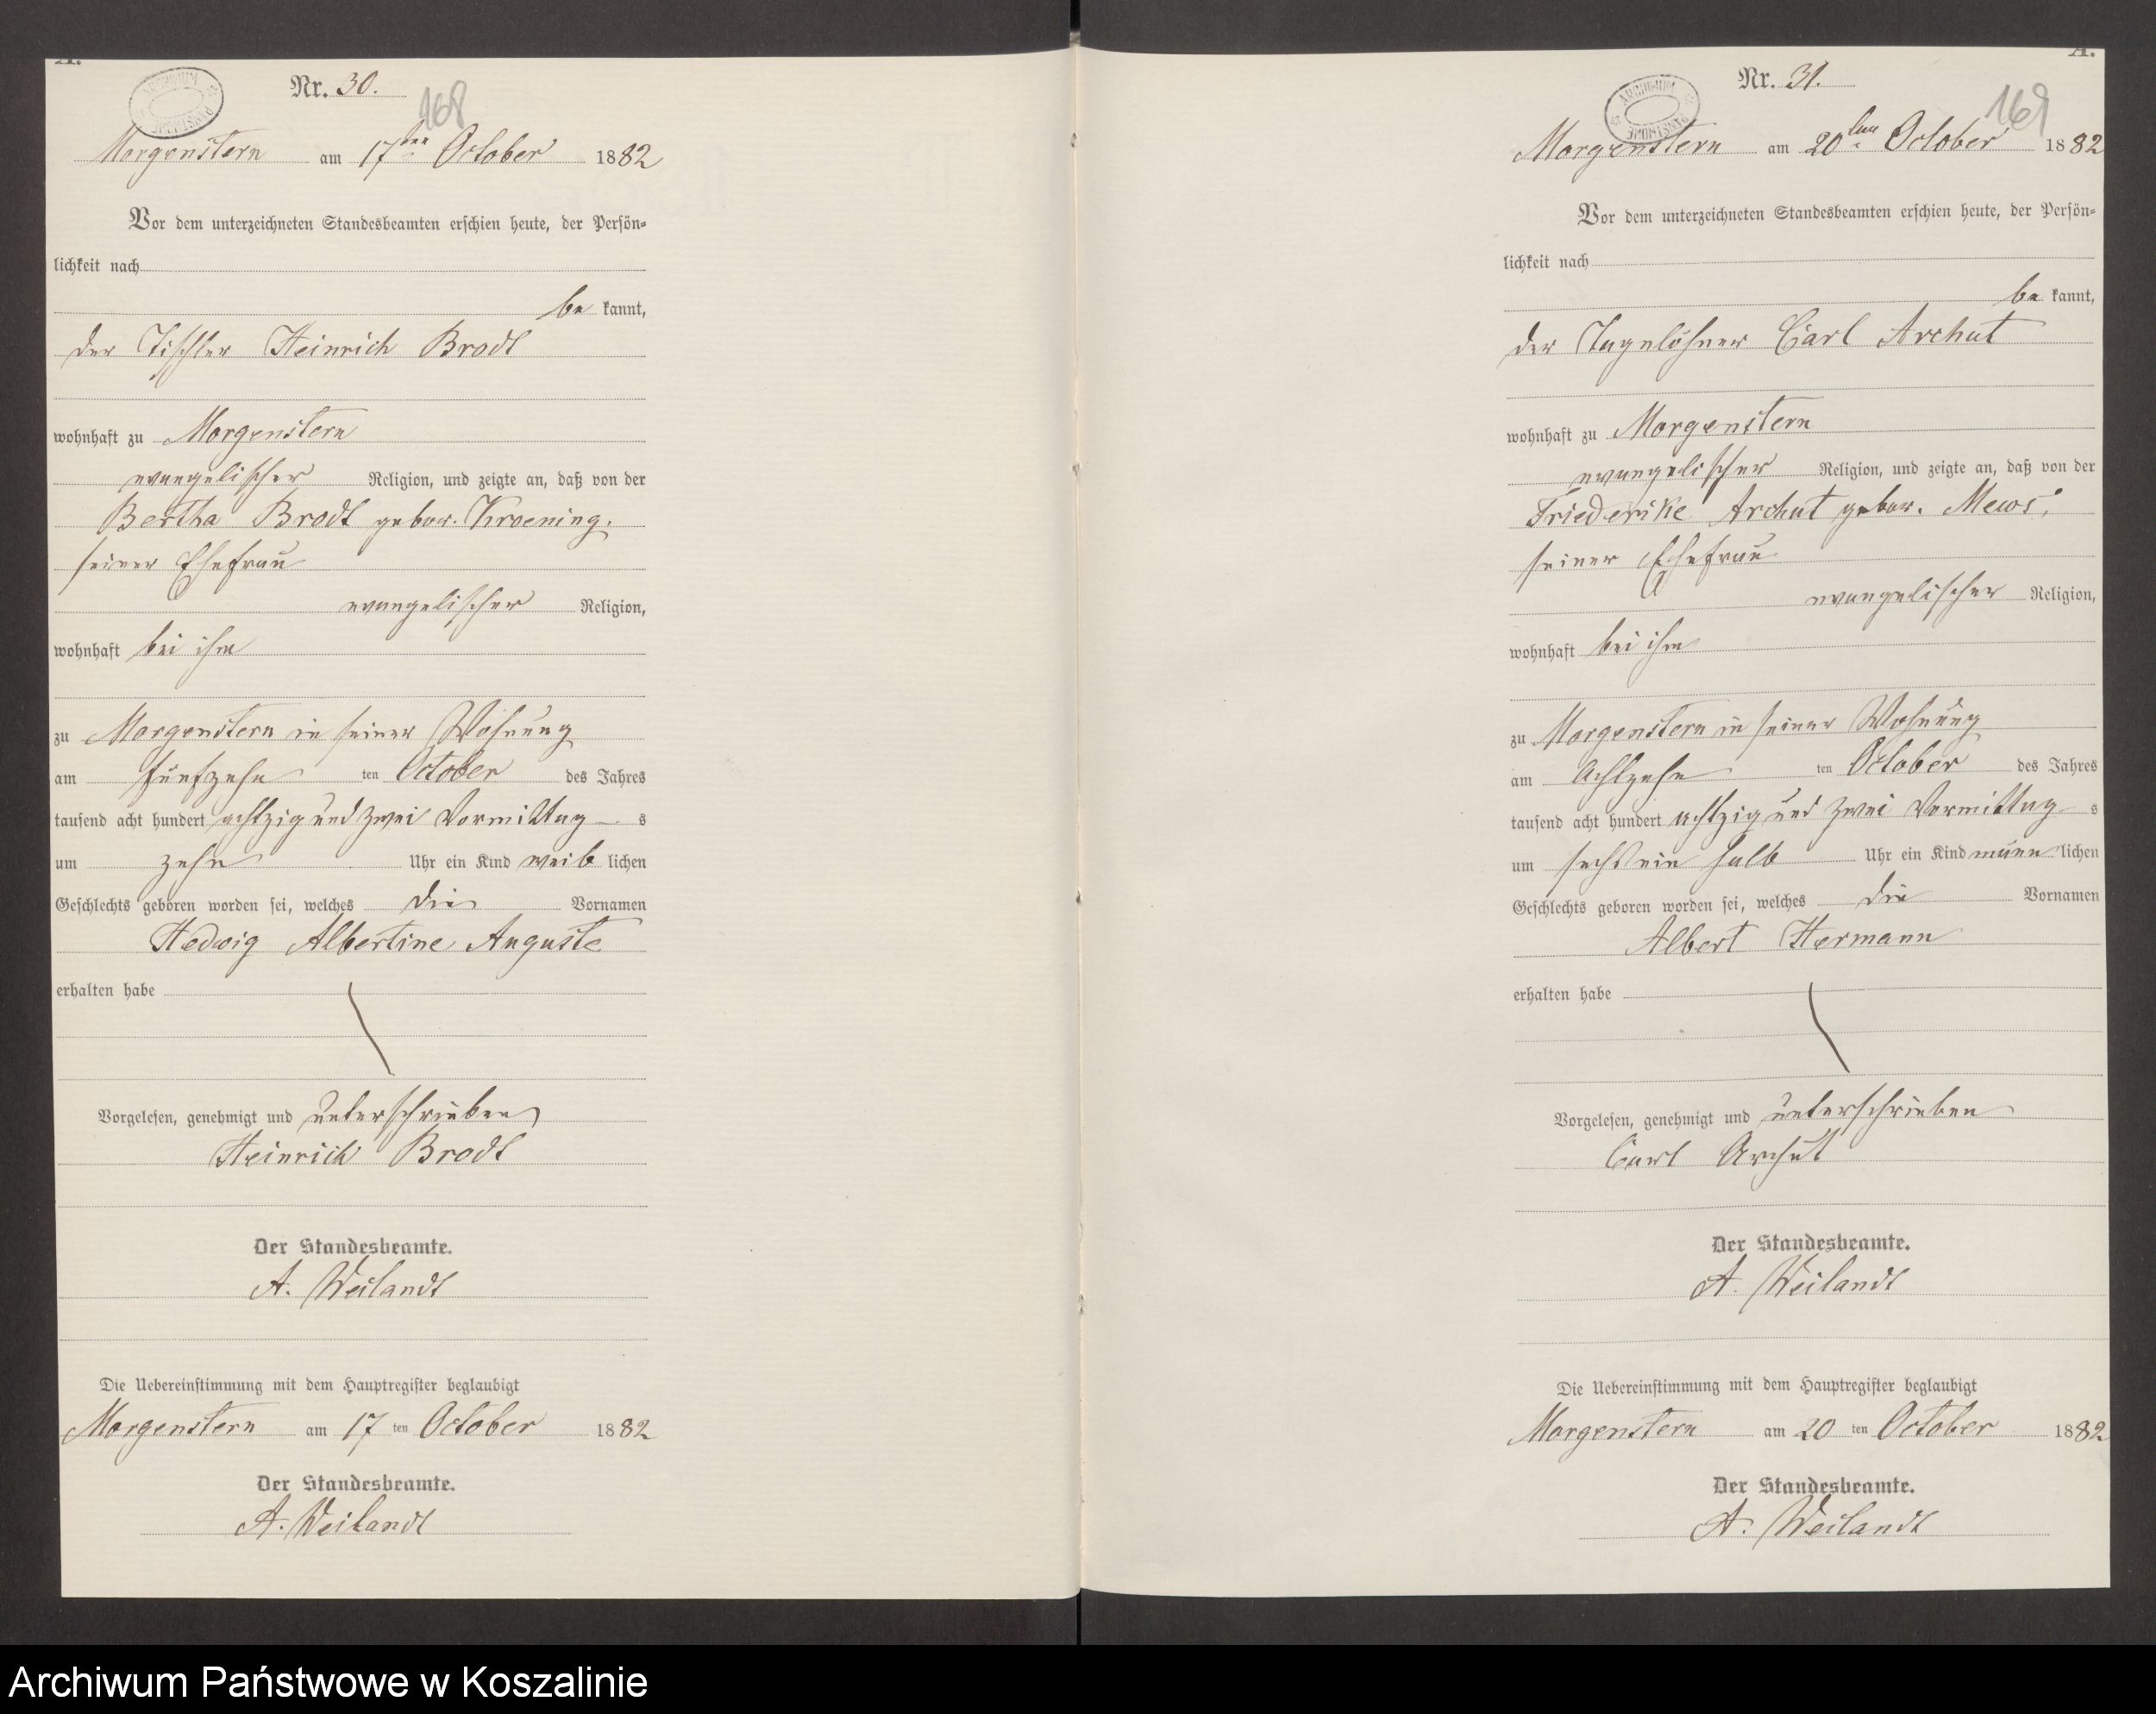 A.
Nr. 30.
168
Morgenstern am 17ten October 1882
Vor dem unterzeichneten Standesbeamten erschien heute, der Persön-
lichkeit nach
be kannt,
der Tischler Heinrich Brodt
wohnhaft zu Morgenstern
evangelischer Religion, und zeigte an, daß von der
Bertha Brodt gebor. Kroening.
seiner Ehefrau
evangelischer Religion,
wohnhaft bei ihm
zu Morgenstern in seiner Wohnung
am fünfzehn ten October des Jahres
tausend acht hundert achtzig und zwei Vormittag s
um zehn Uhr ein Kind weib lichen
Geschlechts geboren worden sei, welches die Vornamen
Hedwig Albertine Auguste
erhalten habe
Vorgelesen, genehmigt und unterschrieben
Heinrich Brodt
Der Standesbeamte.
A. Weilandt
Die Uebereinstimmung mit dem Hauptregister beglaubigt
Morgenstern am 17 ten October 1882
Der Standesbeamte.
A. Weilandt
A.
Nr. 31.
169
Morgenstern am 20ten October 1882
Vor dem unterzeichneten Standesbeamten erschien heute, der Persön-
lichkeit nach
be kannt,
der Tagelöhner Carl Archut
wohnhaft zu Morgenstern
evangelischer Religion, und zeigte an, daß von der
Friederike Archut gebor. Mews.
seiner Ehefrau
evangelischer Religion,
wohnhaft bei ihm
zu Morgenstern in seiner Wohnung
am Achtzehn ten October des Jahres
tausend acht hundert achtzig und zwei Vormittag s
um sechs ein halb Uhr ein Kind männ lichen
Geschlechts geboren worden sei, welches die Vornamen
Albert Hermann
erhalten habe
Vorgelesen, genehmigt und unterschrieben
Carl Archut
Der Standesbeamte.
A. Weilandt
Die Uebereinstimmung mit dem Hauptregister beglaubigt
Morgenstern am 20 ten October 1882
Der Standesbeamte.
A. Weilandt
Archiwum Państwowe w Koszalinie